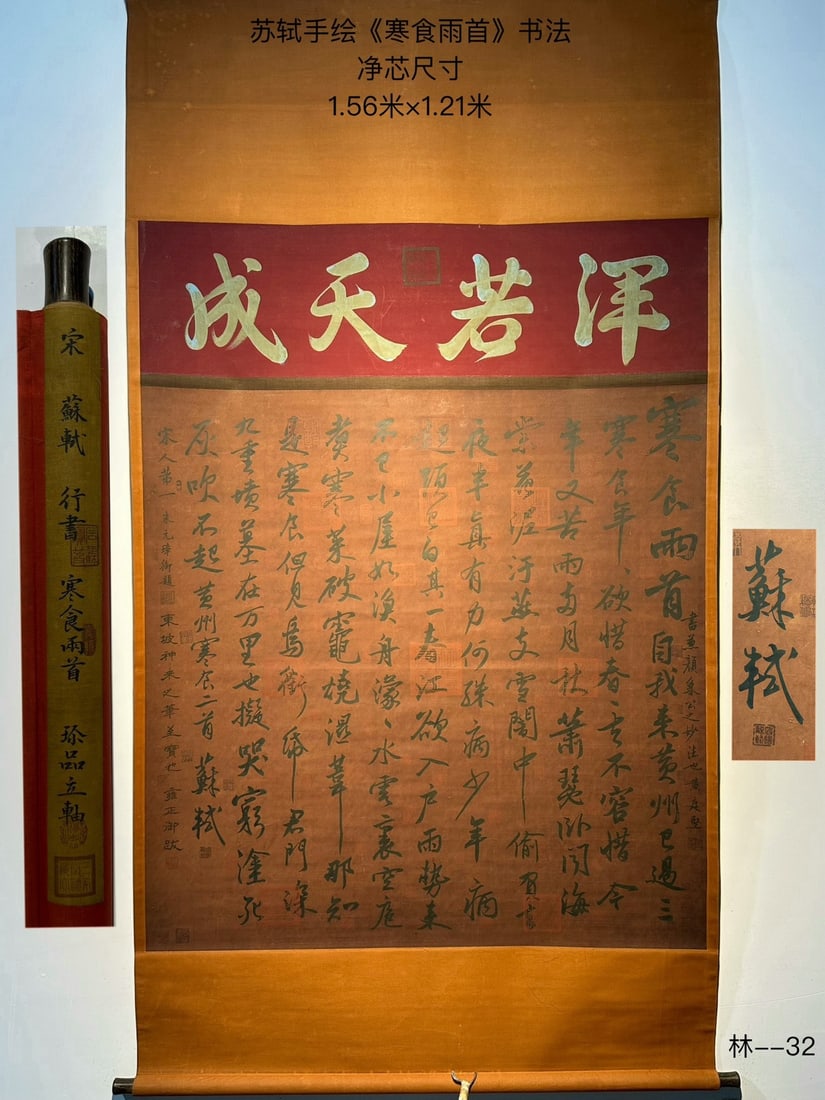 苏轼手绘《寒食雨首》书法
净芯尺寸
1.56米×1.21米
浑若天成
寒食雨首自我来黄州已過三
寒食年、欲惜春、去不容惜今
年又苦雨两月秋蕭瑟卧闻海
棠花泥汙燕支雪闇中偷負去
夜半真有力何殊病少年病
起頭已白其一春江欲入户雨勢来
不已小屋如渔舟濛、水雲裏空庖
煮寒菜破竈燒濕葦那知
是寒食但見烏銜帋君門深
九重墳墓在万里也擬哭窮塗死
灰吹不起黄州寒食二首 蘇軾
宋人第一
東坡神来之筆並寶也 雍正御跋
宋 蘇軾 行書 寒食雨首 珍品立軸
蘇軾
林--32